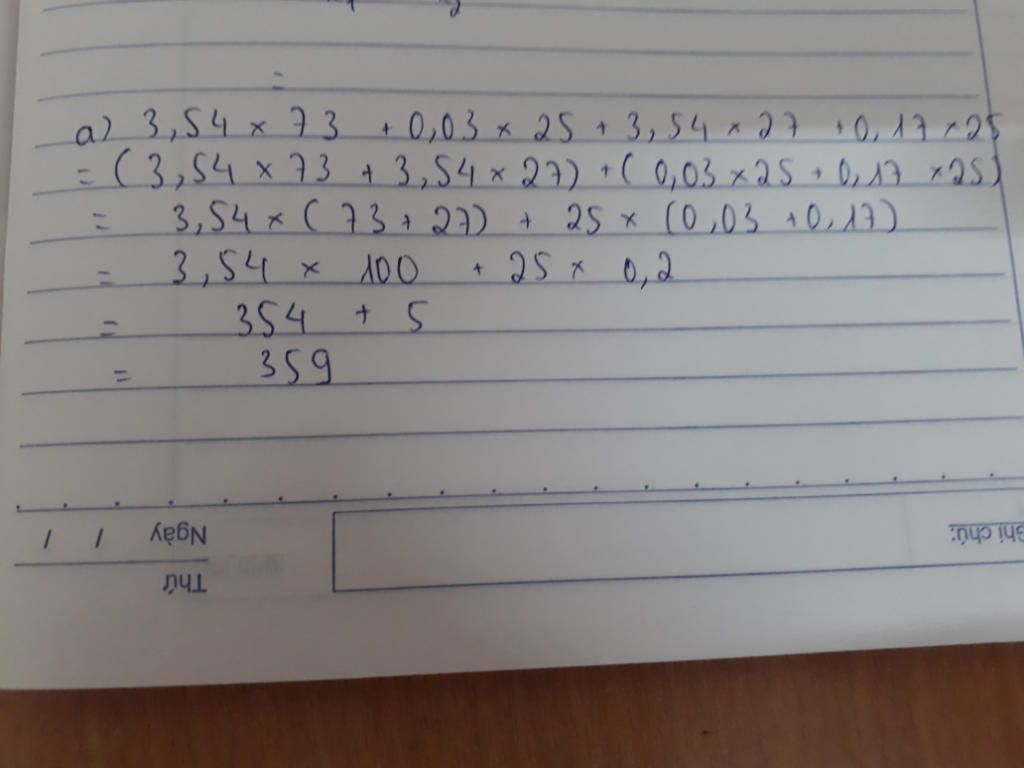 =
a) 3,54 × 73 + 0,03 × 25 + 3,54 × 27 + 0,17 × 25
= (3,54 × 73 + 3,54 × 27) + (0,03 × 25 + 0,17 × 25)
= 3,54 × (73 + 27) + 25 × (0,03 + 0,17)
= 3,54 × 100 + 25 × 0,2
= 354 + 5
= 359
Ghi chú:
Ngày / /
Thứ